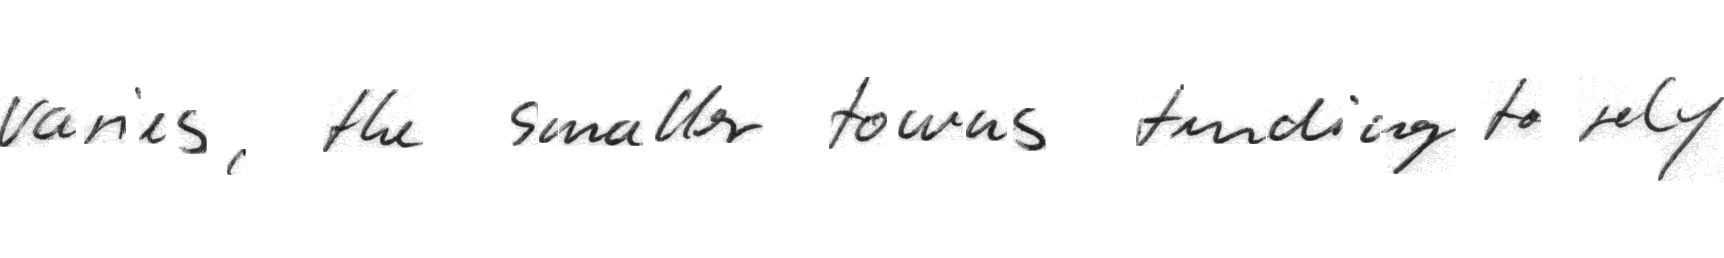 varies, the smaller towns tending to rely